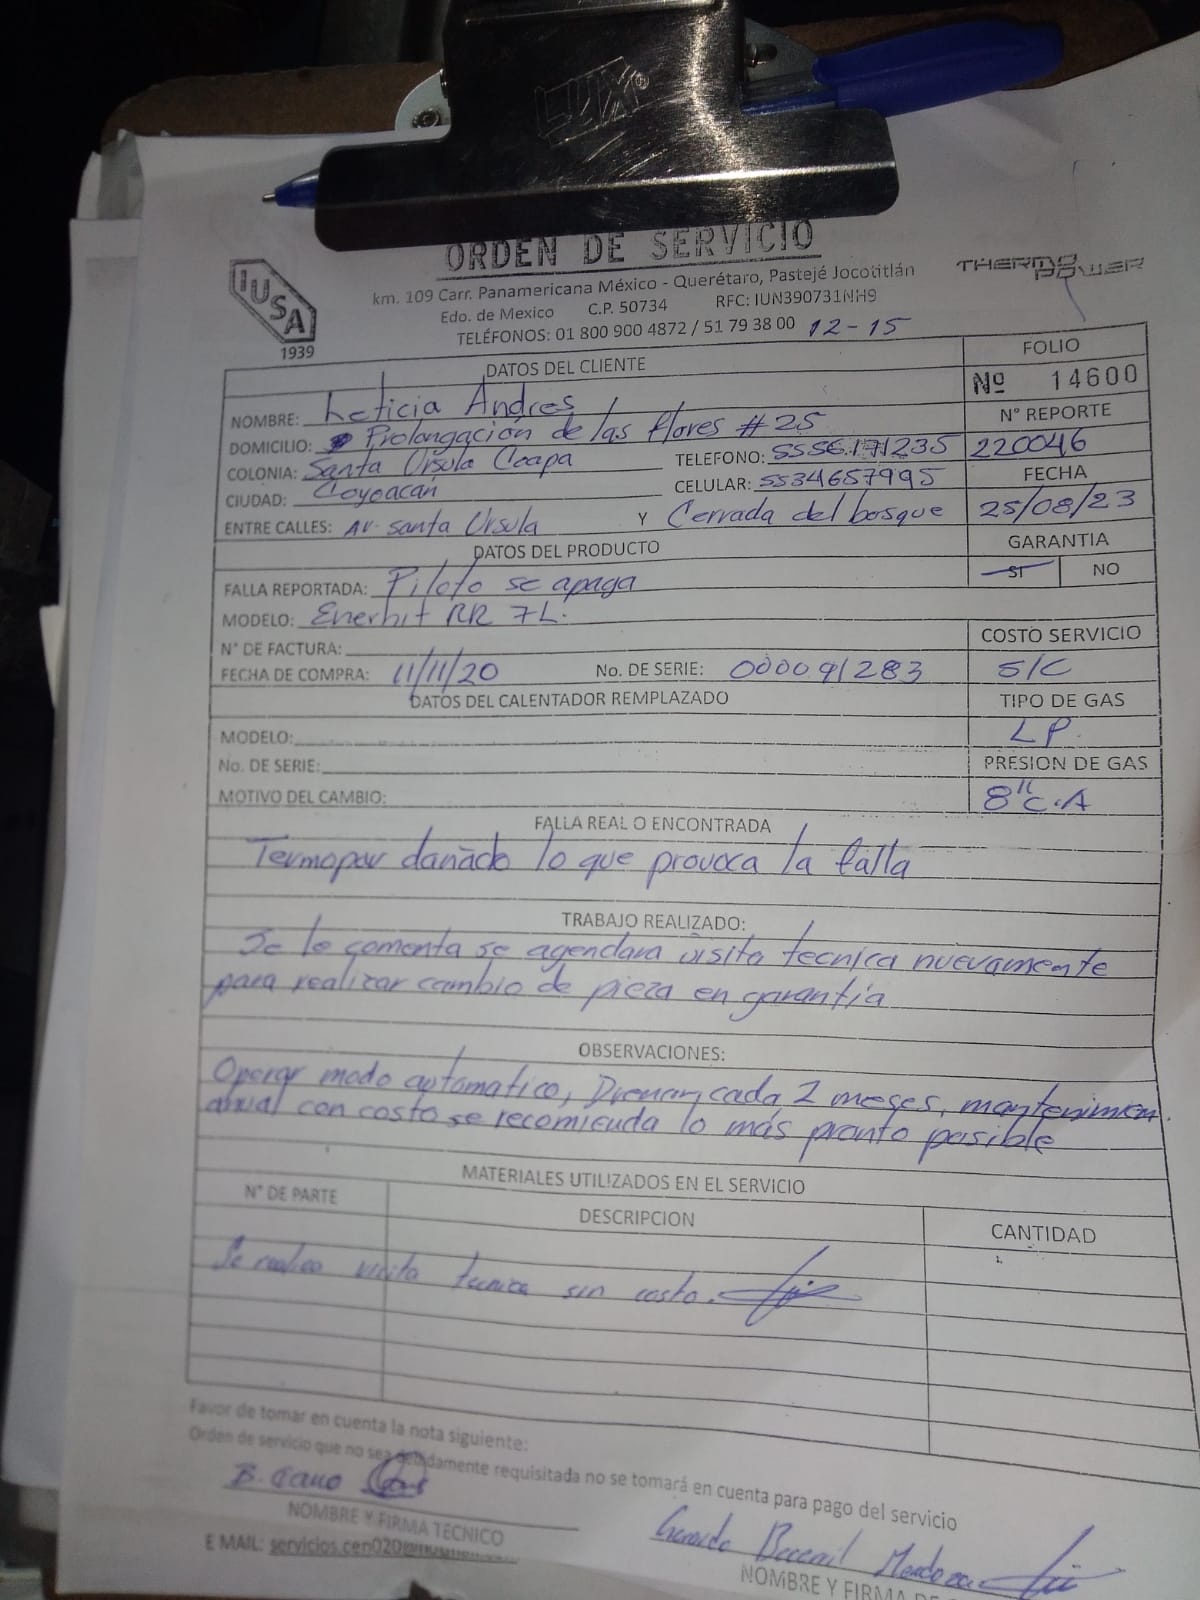 LUX
ORDEN DE SERVICIO
IUSA
1939
THERMO POWER
km. 109 Carr. Panamericana México - Querétaro, Pastejé Jocotitlán
Edo. de Mexico C.P. 50734 RFC: IUN390731NH9
TELÉFONOS: 01 800 900 4872 / 51 79 38 00 12-15
DATOS DEL CLIENTE
FOLIO
Nº 14600
NOMBRE: Leticia Andres
N° REPORTE
220046
DOMICILIO: Prolongación de las flores # 25
COLONIA: Santa Ursula Coapa TELEFONO: 5556171235
CIUDAD: Coyoacán CELULAR: 5534657995
FECHA
25/08/23
ENTRE CALLES: Av. santa Ursula Y Cerrada del bosque
DATOS DEL PRODUCTO
GARANTIA
SI NO
FALLA REPORTADA: Piloto se apaga
MODELO: Enerhit RR 7L.
N° DE FACTURA:
COSTO SERVICIO
S/C
FECHA DE COMPRA: 11/11/20 No. DE SERIE: 000091283
DATOS DEL CALENTADOR REMPLAZADO
TIPO DE GAS
LP.
MODELO:
No. DE SERIE:
PRESION DE GAS
8" C.A
MOTIVO DEL CAMBIO:
FALLA REAL O ENCONTRADA
Termopar dañado lo que provoca la falla
TRABAJO REALIZADO:
Se le comenta se agendara visita tecnica nuevamente
para realizar cambio de pieza en garantía
OBSERVACIONES:
Operar modo automatico, Drenar cada 2 meses, mantenimien.
anual con costo se recomienda lo más pronto posible
MATERIALES UTILIZADOS EN EL SERVICIO
N° DE PARTE DESCRIPCION CANTIDAD
Se realiza visita tecnica sin costo.
Favor de tomar en cuenta la nota siguiente:
Orden de servicio que no sea debidamente requisitada no se tomará en cuenta para pago del servicio
B. Cano
NOMBRE Y FIRMA TECNICO
Gerardo Becerril Mendoza
NOMBRE Y FIRMA DE
E MAIL: